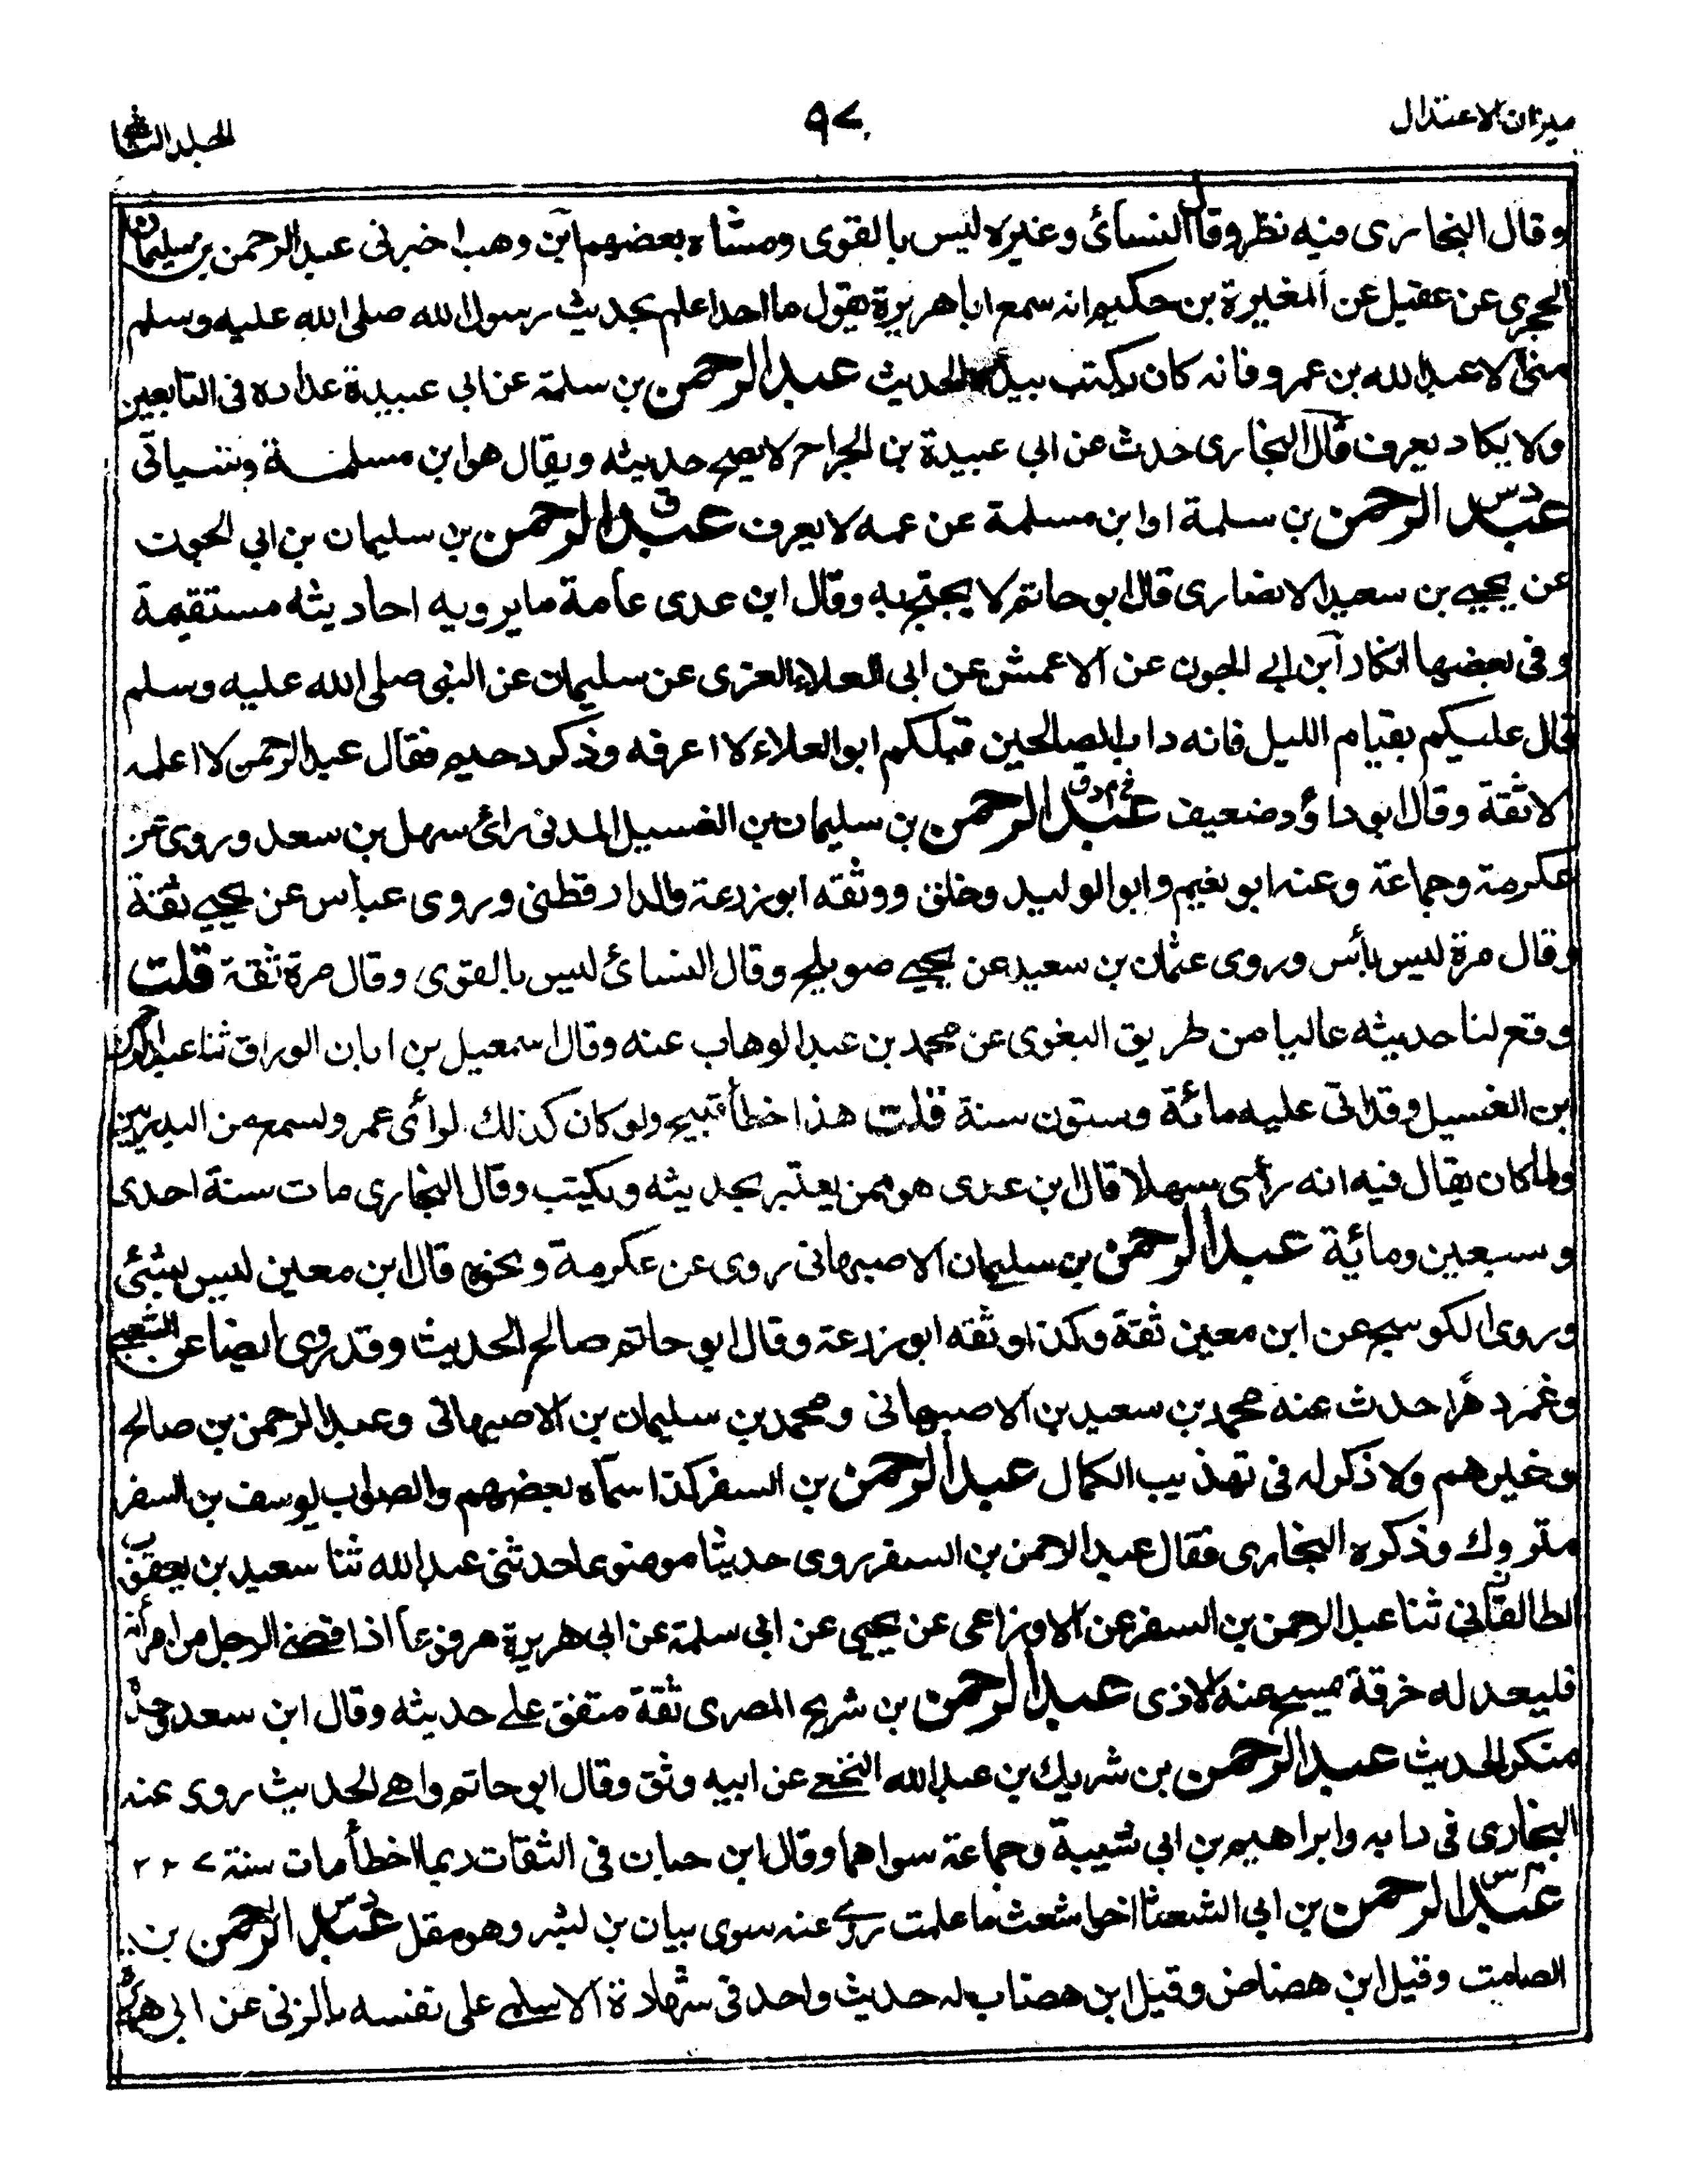 ميزان الاعتدال
٩٧
المجلد الثاني
وقال البخاري فيه نظر وقال النسائى وغيره ليس بالقوى ومشاه بعضهم ابن وهب اخبرنى عبد الرحمن بن سليمان
الحجرى عن عقيل عن المغيرة بن حكيم انه سمع ابا هريرة يقول ما احد اعلم بحديث رسول الله صلى الله عليه وسلم
منى الا عبد الله بن عمرو فانه كان يكتب بيده الحديث عبد الرحمن بن سلمة عن ابى عبيدة عداده فى التابعين
ولا يكاد يعرف قال البخارى حدث عن ابى عبيدة بن الجراح لا يصح حديثه ويقال هو ابن مسلمة وسياتى
عبد الرحمن بن سلمة او ابن مسلمة عن عمه لا يعرف عبد الرحمن بن سليمان بن ابى الجون
عن يحيى بن سعيد الانصارى قال ابو حاتم لا يحتج به وقال ابن عدى عامة ما يرويه احاديثه مستقيمة
وفى بعضها انكار ابن ابى الجون عن الاعمش عن ابى العلاء العنزى عن سليمان عن النبى صلى الله عليه وسلم
قال عليكم بقيام الليل فانه داب الصالحين قبلكم ابو العلاء لا اعرفه وذكر دحيم فقال عبد الرحمن لا اعلمه
لا ثقة وقال ابو داؤد ضعيف عبد الرحمن بن سليمان بن الغسيل المدنى رائ سهل بن سعد وروى عن
عكرمة وجماعة وعنه ابو نعيم وابو الوليد وخلق ووثقه ابو زرعة والدارقطنى وروى عباس عن يحيى ثقة
وقال مرة ليس بأس وروى عثمان بن سعيد عن يحيى صويلح وقال النسائ ليس بالقوى وقال مرة ثقة قلت
وقع لنا حديثه عاليا من طريق البغوى عن محمد بن عبد الوهاب عنه وقال اسمعيل بن ابان الوراق ثنا عبد الرحمن
ابن الغسيل وقد اتى عليه مائة وستون سنة قلت هذا خطأ قبيح ولو كان كذلك لرأى عمر ولسمع من البدريين
ولما كان يقال فيه انه رأى سهلا قال ابن عدى هو ممن يعتبر بحديثه ويكتب وقال البخارى مات سنة احدى
وسبعين ومائة عبد الرحمن بن سليمان الاصبهانى روى عن عكرمة ونحوه قال ابن معين ليس بشئى
وروى الكوسج عن ابن معين ثقة وكذا وثقه ابو زرعة وقال ابو حاتم صالح الحديث وقد روى ايضا عن الشعبى
وعمر دهرا حدث عنه محمد بن سعيد بن الاصبهانى ومحمد بن سليمان بن الاصبهانى وعبد الرحمن بن صالح
وغيرهم ولا ذكر له فى تهذيب الكمال عبد الرحمن بن السفر كذا سماه بعضهم والصواب يوسف بن السفر
متروك وذكره البخارى فقال عبد الرحمن بن السفر روى حديثا موضوعا حدثنى عبد الله ثنا سعيد بن يعقوب
الطالقانى ثنا عبد الرحمن بن السفر عن الاوزاعى عن يحيى عن ابى سلمة عن ابى هريرة مرفوعا اذا قضى الرجل من امرأته
فليعد له خرقة يمسح عنه الاذى عبد الرحمن بن شريح المصرى ثقة متفق على حديثه وقال ابن سعد وحده
منكر الحديث عبد الرحمن بن شريك بن عبد الله النخعى عن ابيه وثق وقال ابو حاتم واهى الحديث روى عنه
البخارى فى دابه وابراهيم بن ابى شيبة وجماعة سواهما وقال ابن حبان فى الثقات ربما اخطأ مات سنة ٢٢٧
عبد الرحمن بن ابى الشعثا اخو اشعث ما علمت روى عنه سوى بيان بن بشر وهو مقل عبد الرحمن بن
الصامت وقيل ابن هضاض وقيل ابن هضاب له حديث واحد فى شهادة الاسلمى على نفسه بالزنى عن ابى هريرة